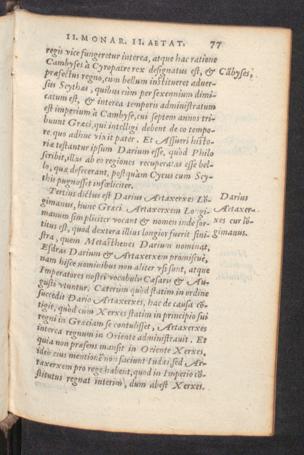 II. MONAR. II. AETAT. 77
regis vice fungeretur interea, atque hac ratione
Cambyses à Cyro patre rex designatus est, & Cābyses.
præfectus regno, cum bellum institueret adver-
sus Scythas, quibus cùm per sexennium dimi-
catum est, & interea temporis administratum
est imperium à Cambyse, cui septem annos tri-
bunt Græci, qui intelligi debent de eo tempo-
re quo adhuc vixit pater. Et Assueri histo-
ria testantur ipsum Darium esse, quòd Philo
scribit, illas ab eo regiones recuperatas esse bel-
lo, quæ defecerant, postquàm Cyrus cum Scy-
this pugnasset infœliciter.
Tertius dictus est Darius Artaxerxes Lō- Darius
gimanus, hunc Græci Artaxerxem Longi- Artaxer-
manum simpliciter vocant & nomen inde for- xes cur lō-
titus est, quod dextera illius longior fuerit sini- gimanus.
stra, quem Metasthenes Darium nominat,
Esdras Darium & Artaxerxem promiscuè,
nam hisce nominibus non aliter usi sunt, atque
Imperatores nostri vocabulis Cæsaris & Au-
gusti utuntur. Cæterùm quòd statim in ordine
succedit Dario Artaxerxes, hac de causa cō-
tigit, quòd cum Xerxes statim in principio sui
regni in Græciam se contulisset, Artaxerxes
interea regnum in Oriente administravit. Et
quia non præsens mansit in Oriente Xerxes,
ideò eius mentionē non faciunt Iudæi, sed Ar-
taxerxem pro rege habent, quod in Imperio cō-
stitutus regnat interim, dum abest Xerxes.